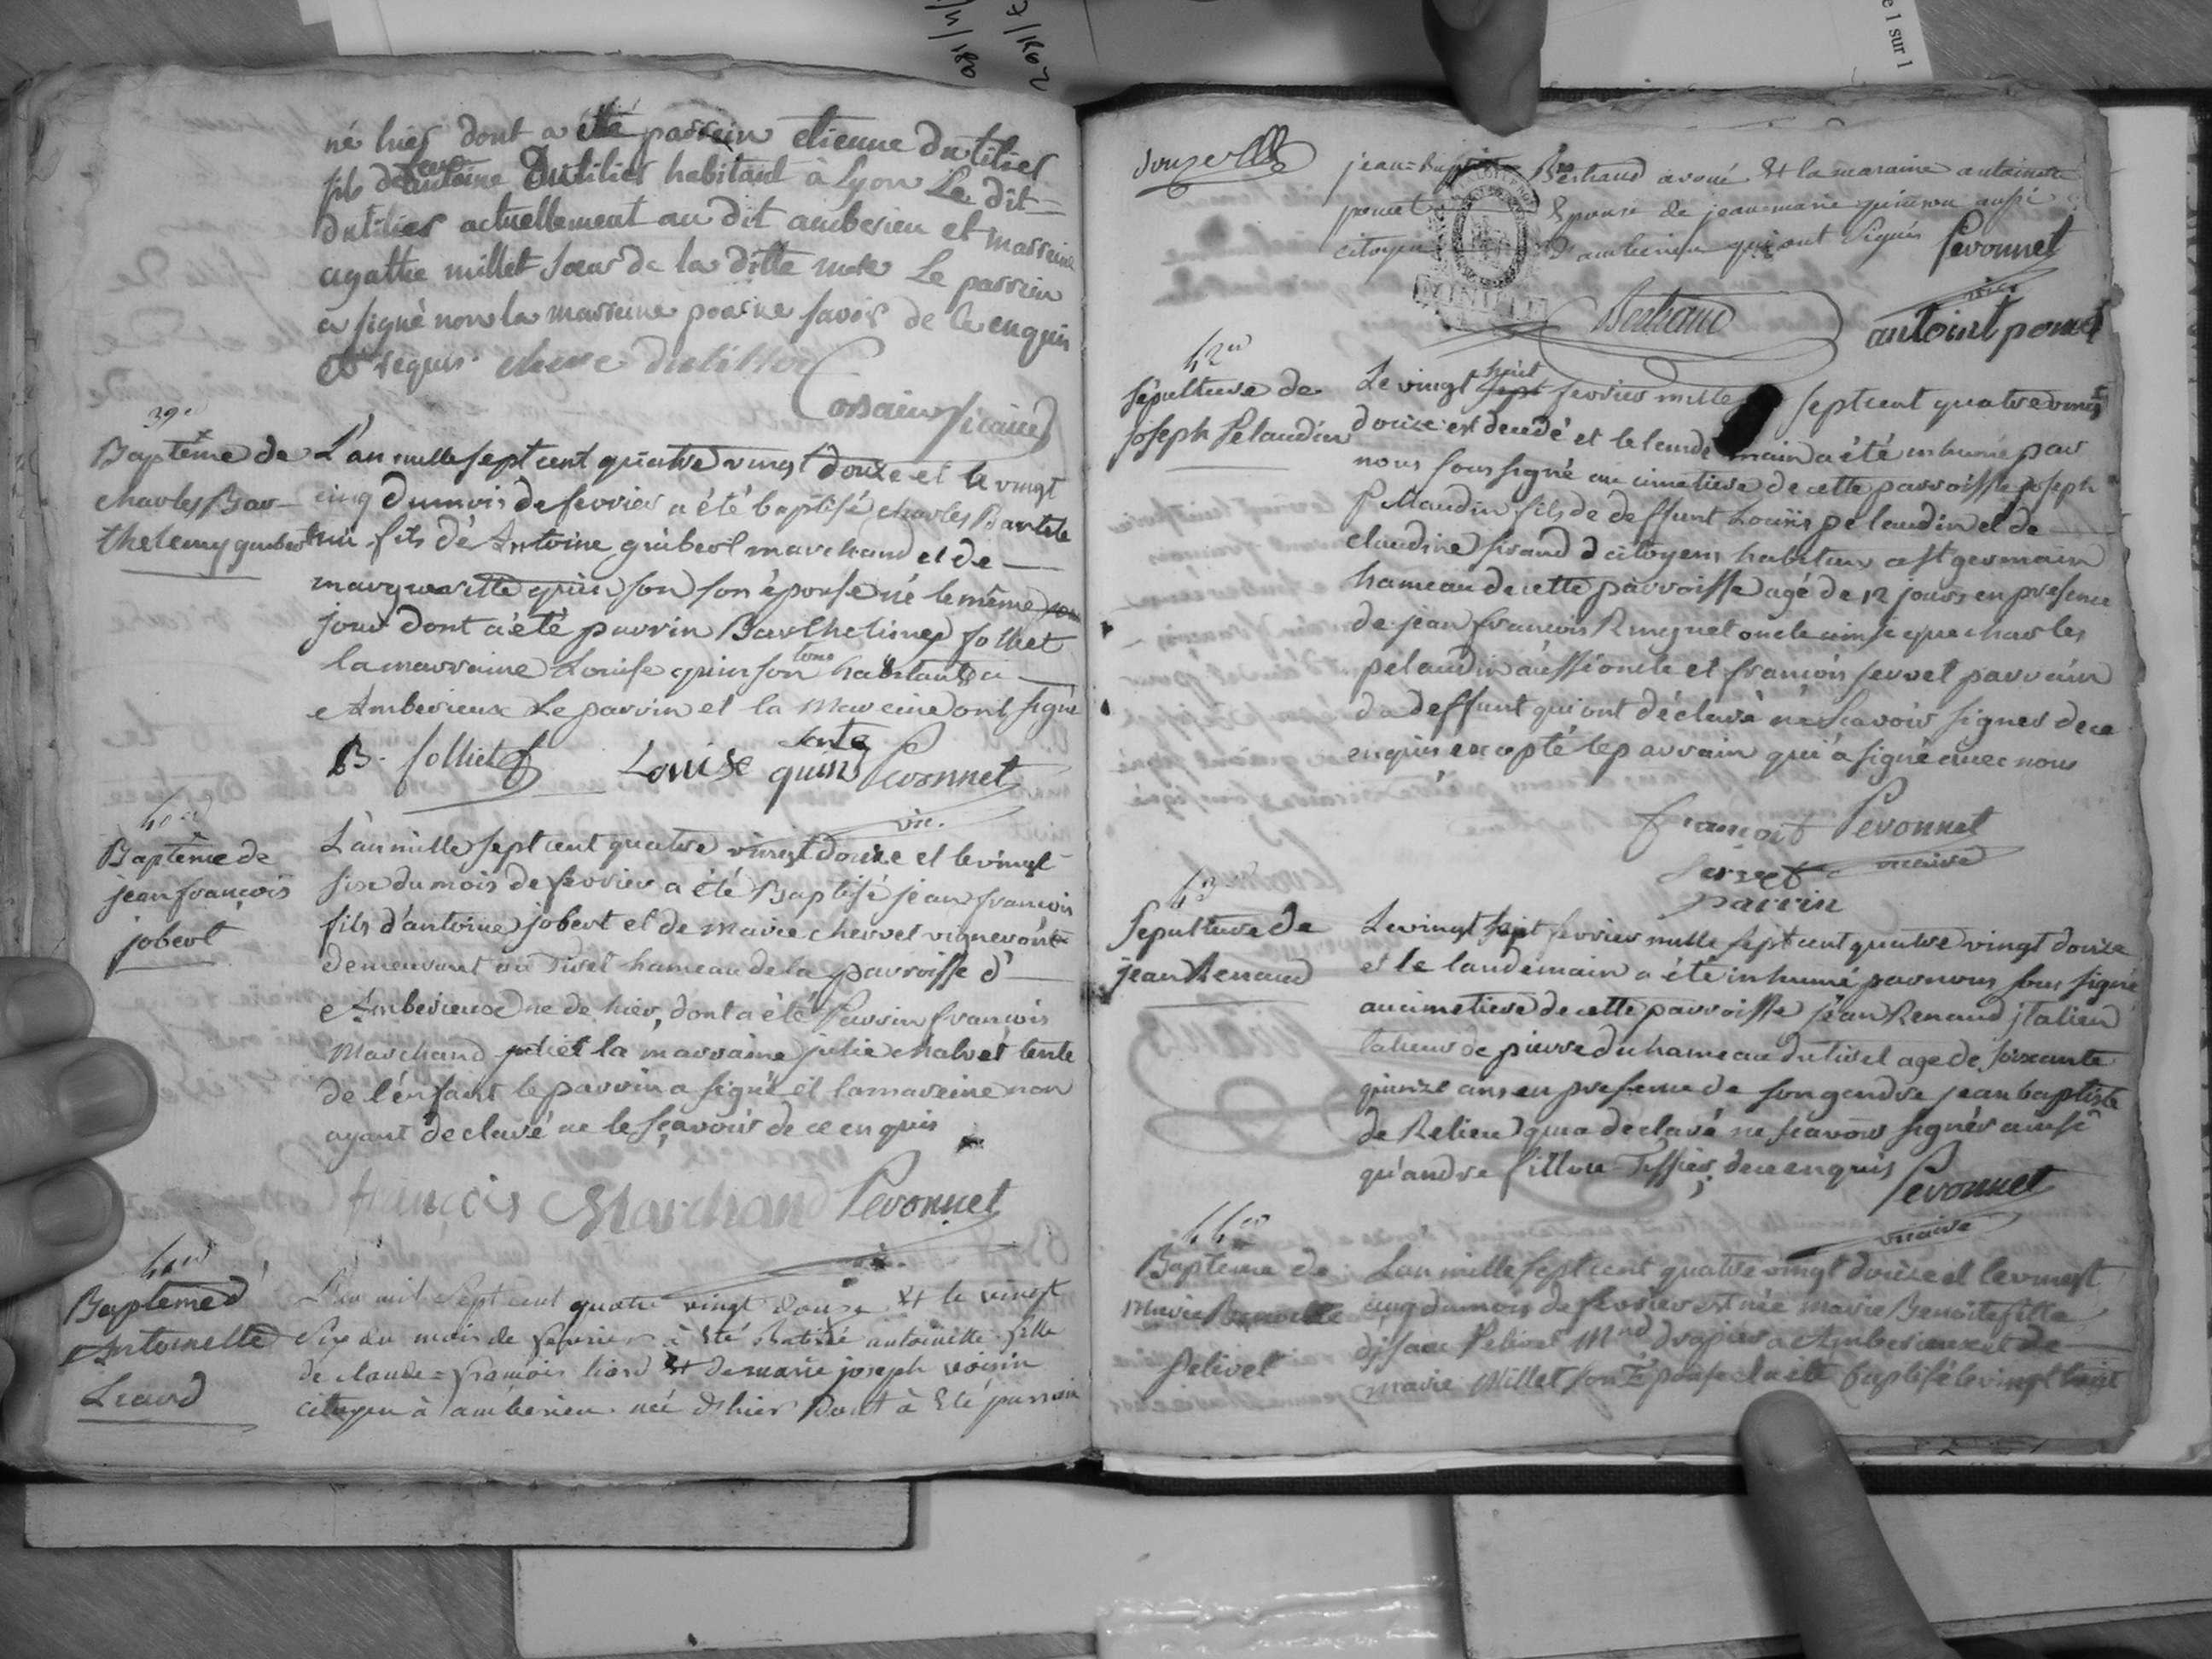 né hier dont a été parrein etienne dutilier
fils de feu antoine Dutilier habitant à Lyon Le dit
dutilier actuellement au dit amberieu et marreine
agathe millet sœur de la ditte mere Le parrein
a signé non la marreine pour ne savoir de ce enquis
et requis. etiene dutillier
vicaire
39e
Baptême de
charles Bar-
thelemy guibert
L'an mille sept cent quatre vingt douze et le vingt
cinq du mois de fevrier a été baptisé charles Bartele
mi fils de Antoine guibert marchand et de
marguerite quinson son épouse né le même
jour dont a été parrin Barthelimey folliet
la marraine Louise quinson tous habitants a
Amberieux Le parrin et la Mareine ont signé
B. folliet Louise quinson Sevonnet
vic.
40e
Baptême de
jean françois
jobert
L'an mille sept cent quatre vingt douze et le vingt
six du mois de fevrier a été Baptisé jean françois
fils d'antoine jobert et de Marie chervet vigneron
demeurant au Tiret hameau de la parroisse d'
Amberieux né de hier, dont a été Parrin françois
Marchand et la marraine julie chalvet tente
de l'enfant le parrin a signé et la mareine non
ayant declaré ne le sçavoir de ce enquis
françois Marchand Sevonnet
vic.
41e
Baptême d'
Antoinette
Liard
L'an mil sept cent quatre vingt douze et le vingt
six du mois de fevrier à été Batisé antoinette fille
de claude=françois liard et de marie joseph voisin
citoyen à amberieu née d'hier Dont à été parrain
jean=Baptiste Bertrand avoué et la maraine antoinette
pomet Epouse de jean marie quinson aussi
citoyen d'amberieu qui ont signés Sevonnet
vic.
Bertrand antoint pomet
42e
Sépulture de
joseph Pelaudin
Le vingt huit fevrier mille sept cent quatre vingt
douze est decedé et le lendemain a été inhumé par
nous sous signé au cimetiere de cette parroisse joseph
Pelaudin fils de deffunt Louis pelaudin et de
claudine sirand citoyens habitans a St germain
hameau de cette parroisse agé de 12 jours en presence
de jean françois Ringuet oncle ainsi que charles
pelaudin aussi oncle et françois servet parrain
du deffunt qui ont déclaré ne sçavoir signer de ce
enquis excepté le parrain qui a signé avec nous
françois Sevonnet
servet vicaire
parrin
43e
Sepulture de
jean Renaud
Le vingt sept fevrier mille sept cent quatre vingt douze
et le landemain a été inhumé par nous sous signé
au cimetiere de cette parroisse jean Renaud jtalien
tailleur de pierre du hameau du tiret age de soixante
quinze ans en presence de son gendre jean baptiste
de Relieu qui a declaré ne sçavoir signer ainsi
qu'andre fillion Tissier, de ce enquis Sevonnet
vicaire
44e
Bapteme de
Marie Benoitte
Pelivet
L'an mille sept cent quatre vingt douze et le vingt
cinq du mois de fevrier est née marie Benoite fille
d'jsaac Pelivet Md drapier a Amberieux et de
Marie Millet son Epouse et a été baptisé le vingt huit
e 1 sur 1